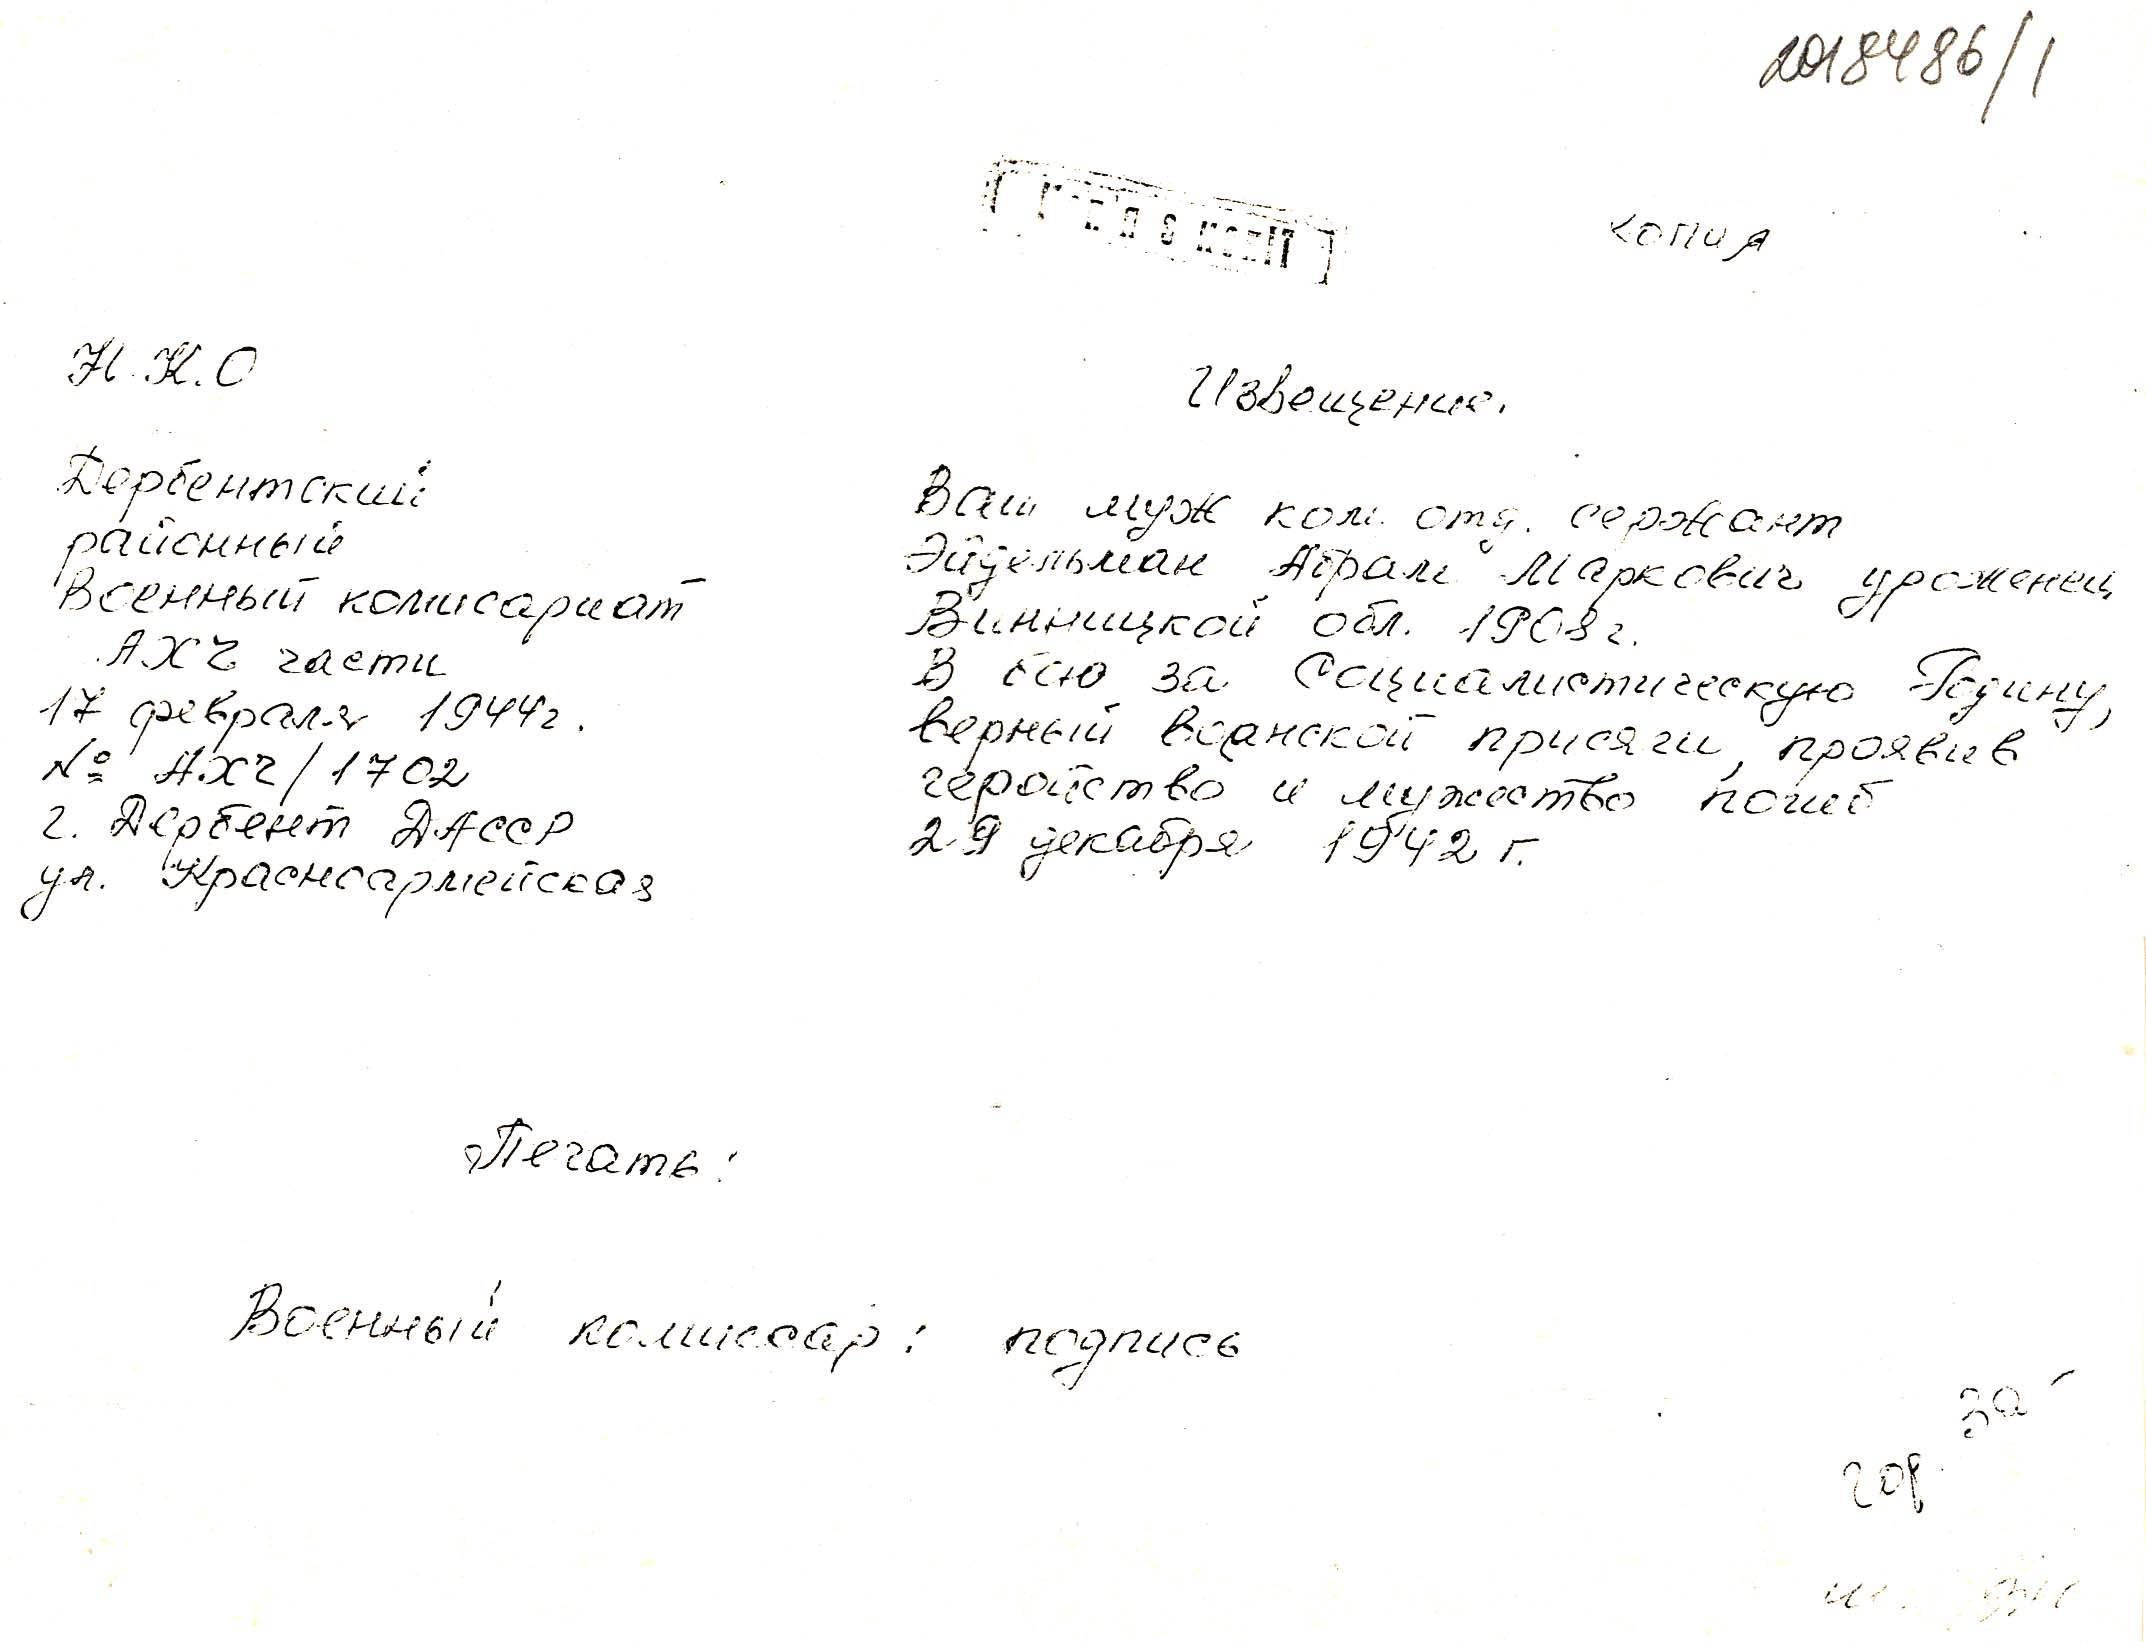 2018486/1
копия
Н.К.О
Извещение.
Дербентский
районный
Военный комисариат
АХЧ части
17 февраля 1944г.
№ АХЧ/1702
г. Дербент ДАССР
ул. Красноармейская
Ваш муж ком. отд. сержант
Эйдельман Абрам Маркович уроженец
Винницкой обл. 1908г.
В бою за Социалистическую Родину,
верный воинской присяги, проявив
геройство и мужество погиб
29 декабря 1942 г.
Печать:
Военный комиссар: подпись
за
гор